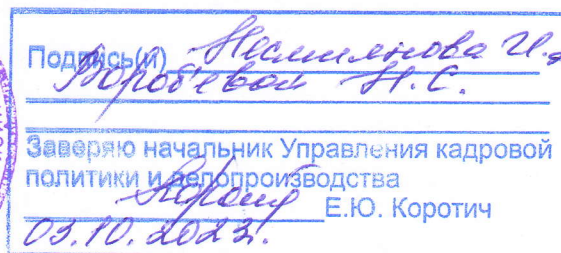 Подпись(и) Несмиянова И.
Воробьевой Н.С.
Заверяю начальник Управления кадровой
политики и делопроизводства
Е.Ю. Коротич
03.10.2023г.